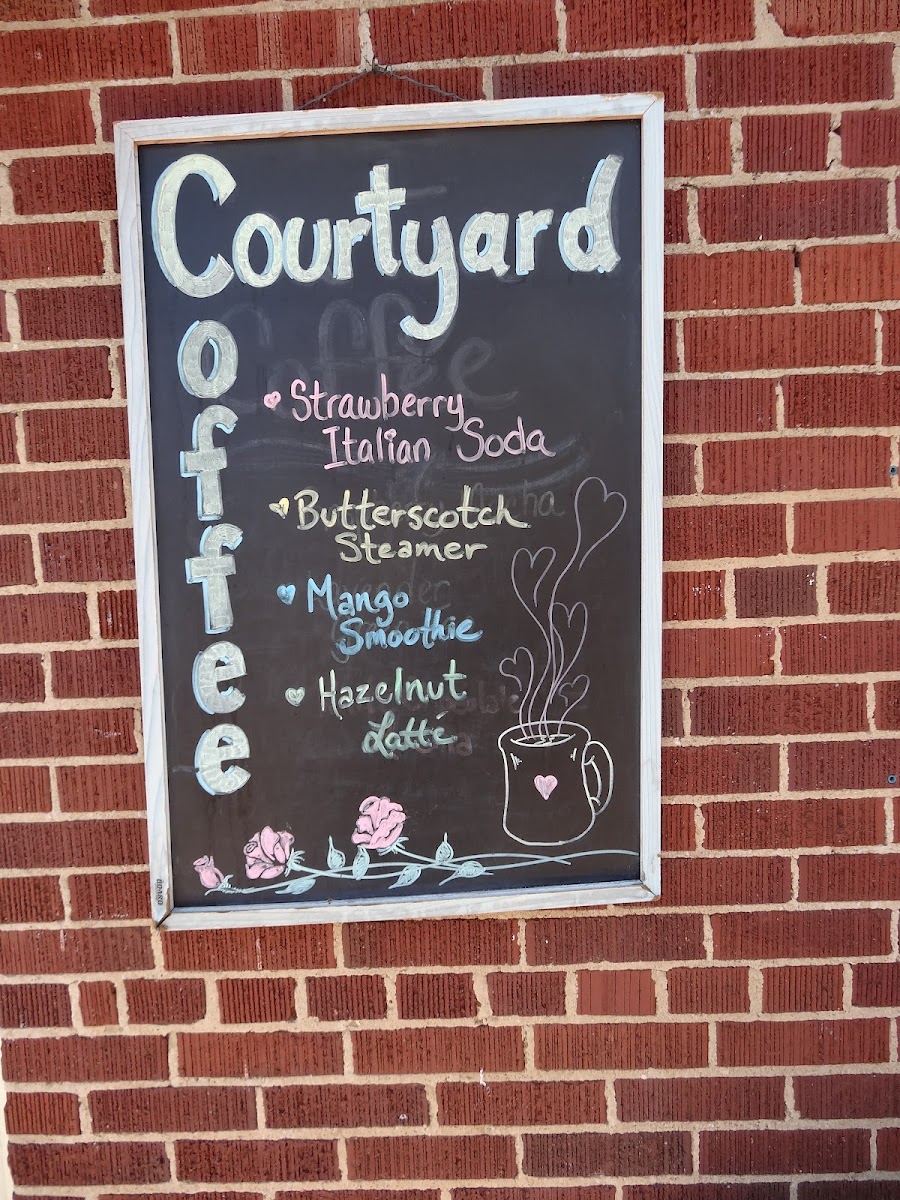 Courtyard
Coffee
Strawberry
Italian Soda
Butterscotch
Steamer
Mango
Smoothie
Hazelnut
Latté